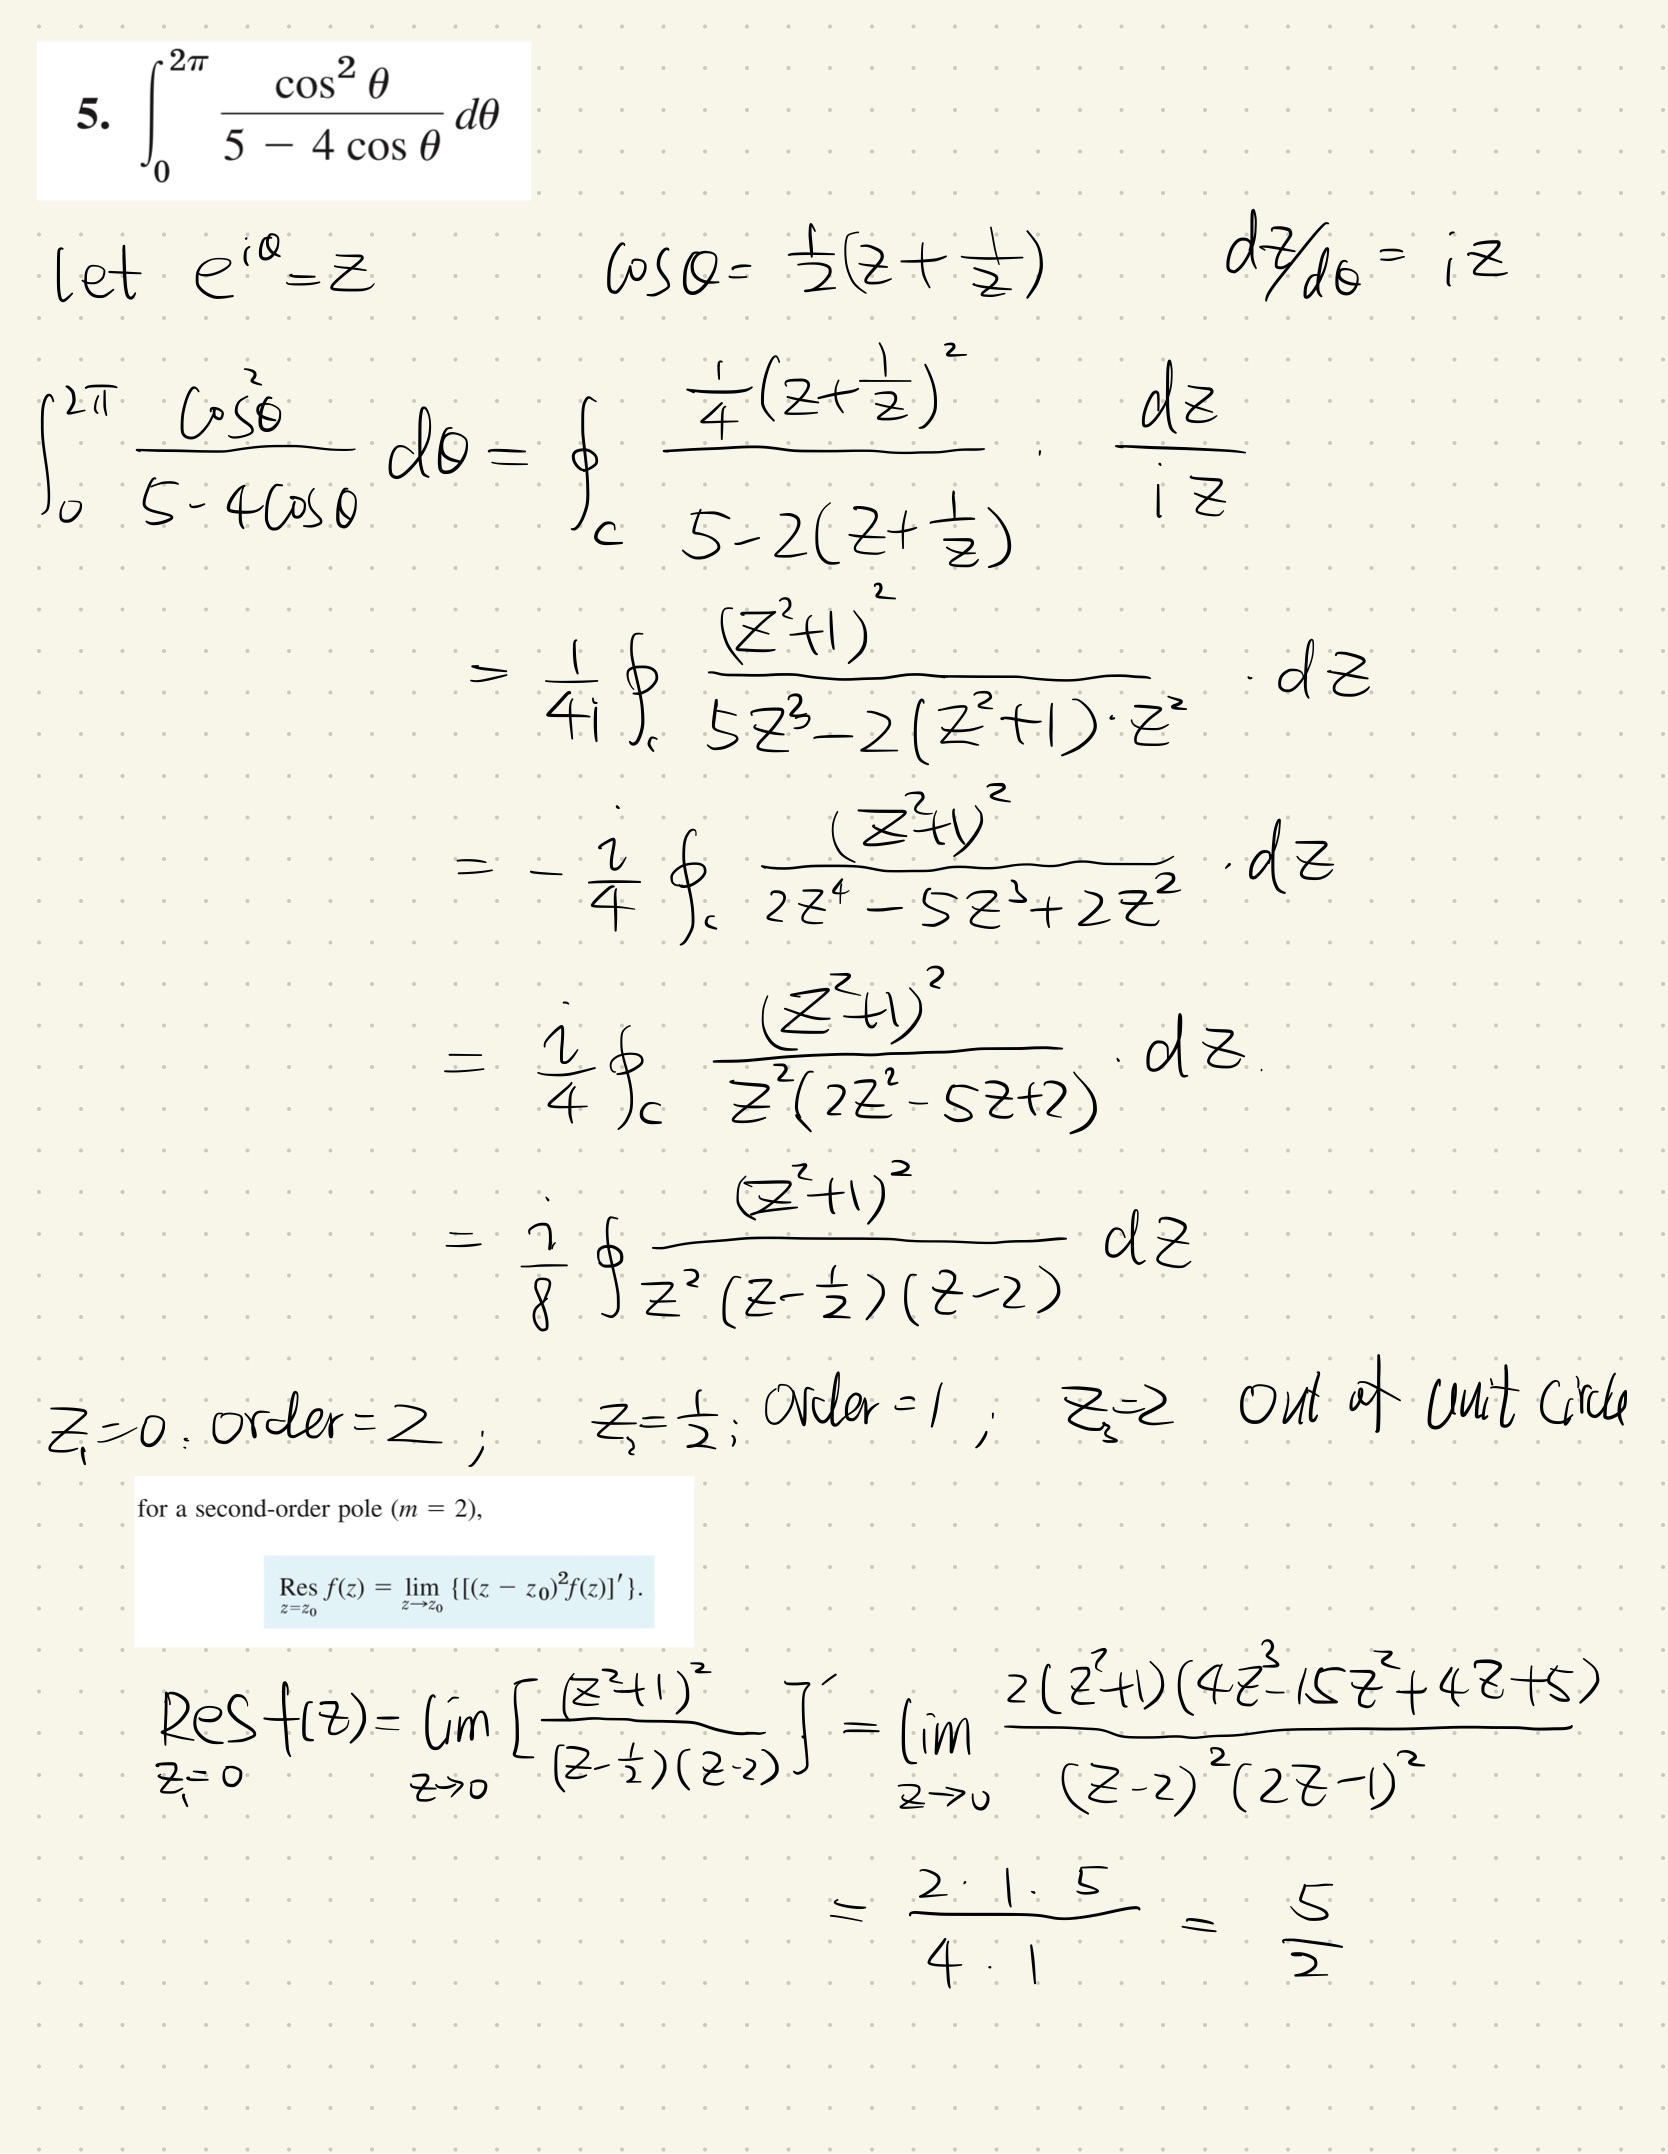 5. ∫₀^{2π} cos² θ / (5 − 4 cos θ) dθ
let e^{iθ} = z    cosθ = 1/2 (z + 1/z)    dz/dθ = iz
∫₀^{2π} cos²θ / (5 - 4cosθ) dθ = ∮_C 1/4 (z + 1/z)² / (5 - 2(z + 1/z)) · dz / iz
= 1/4i ∮_C (z²+1)² / (5z³ - 2(z²+1)·z²) · dz
= - i/4 ∮_C (z²+1)² / (2z⁴ - 5z³ + 2z²) · dz
= i/4 ∮_C (z²+1)² / (z²(2z² - 5z + 2)) · dz
= i/8 ∮ (z²+1)² / (z² (z - 1/2)(z - 2)) dz
z₁=0. order = 2 ;    z₂ = 1/2 ; order = 1 ;    z₃=2 out of unit circle
for a second-order pole (m = 2),
Res_{z=z₀} f(z) = lim_{z→z₀} {[(z − z₀)²f(z)]′}.
Res_{z₁=0} f(z) = lim_{z→0} [(z²+1)² / ((z - 1/2)(z-2))]′ = lim_{z→0} 2(z²+1)(4z³-15z²+4z+5) / ((z-2)²(2z-1)²)
= 2·1·5 / 4·1 = 5/2